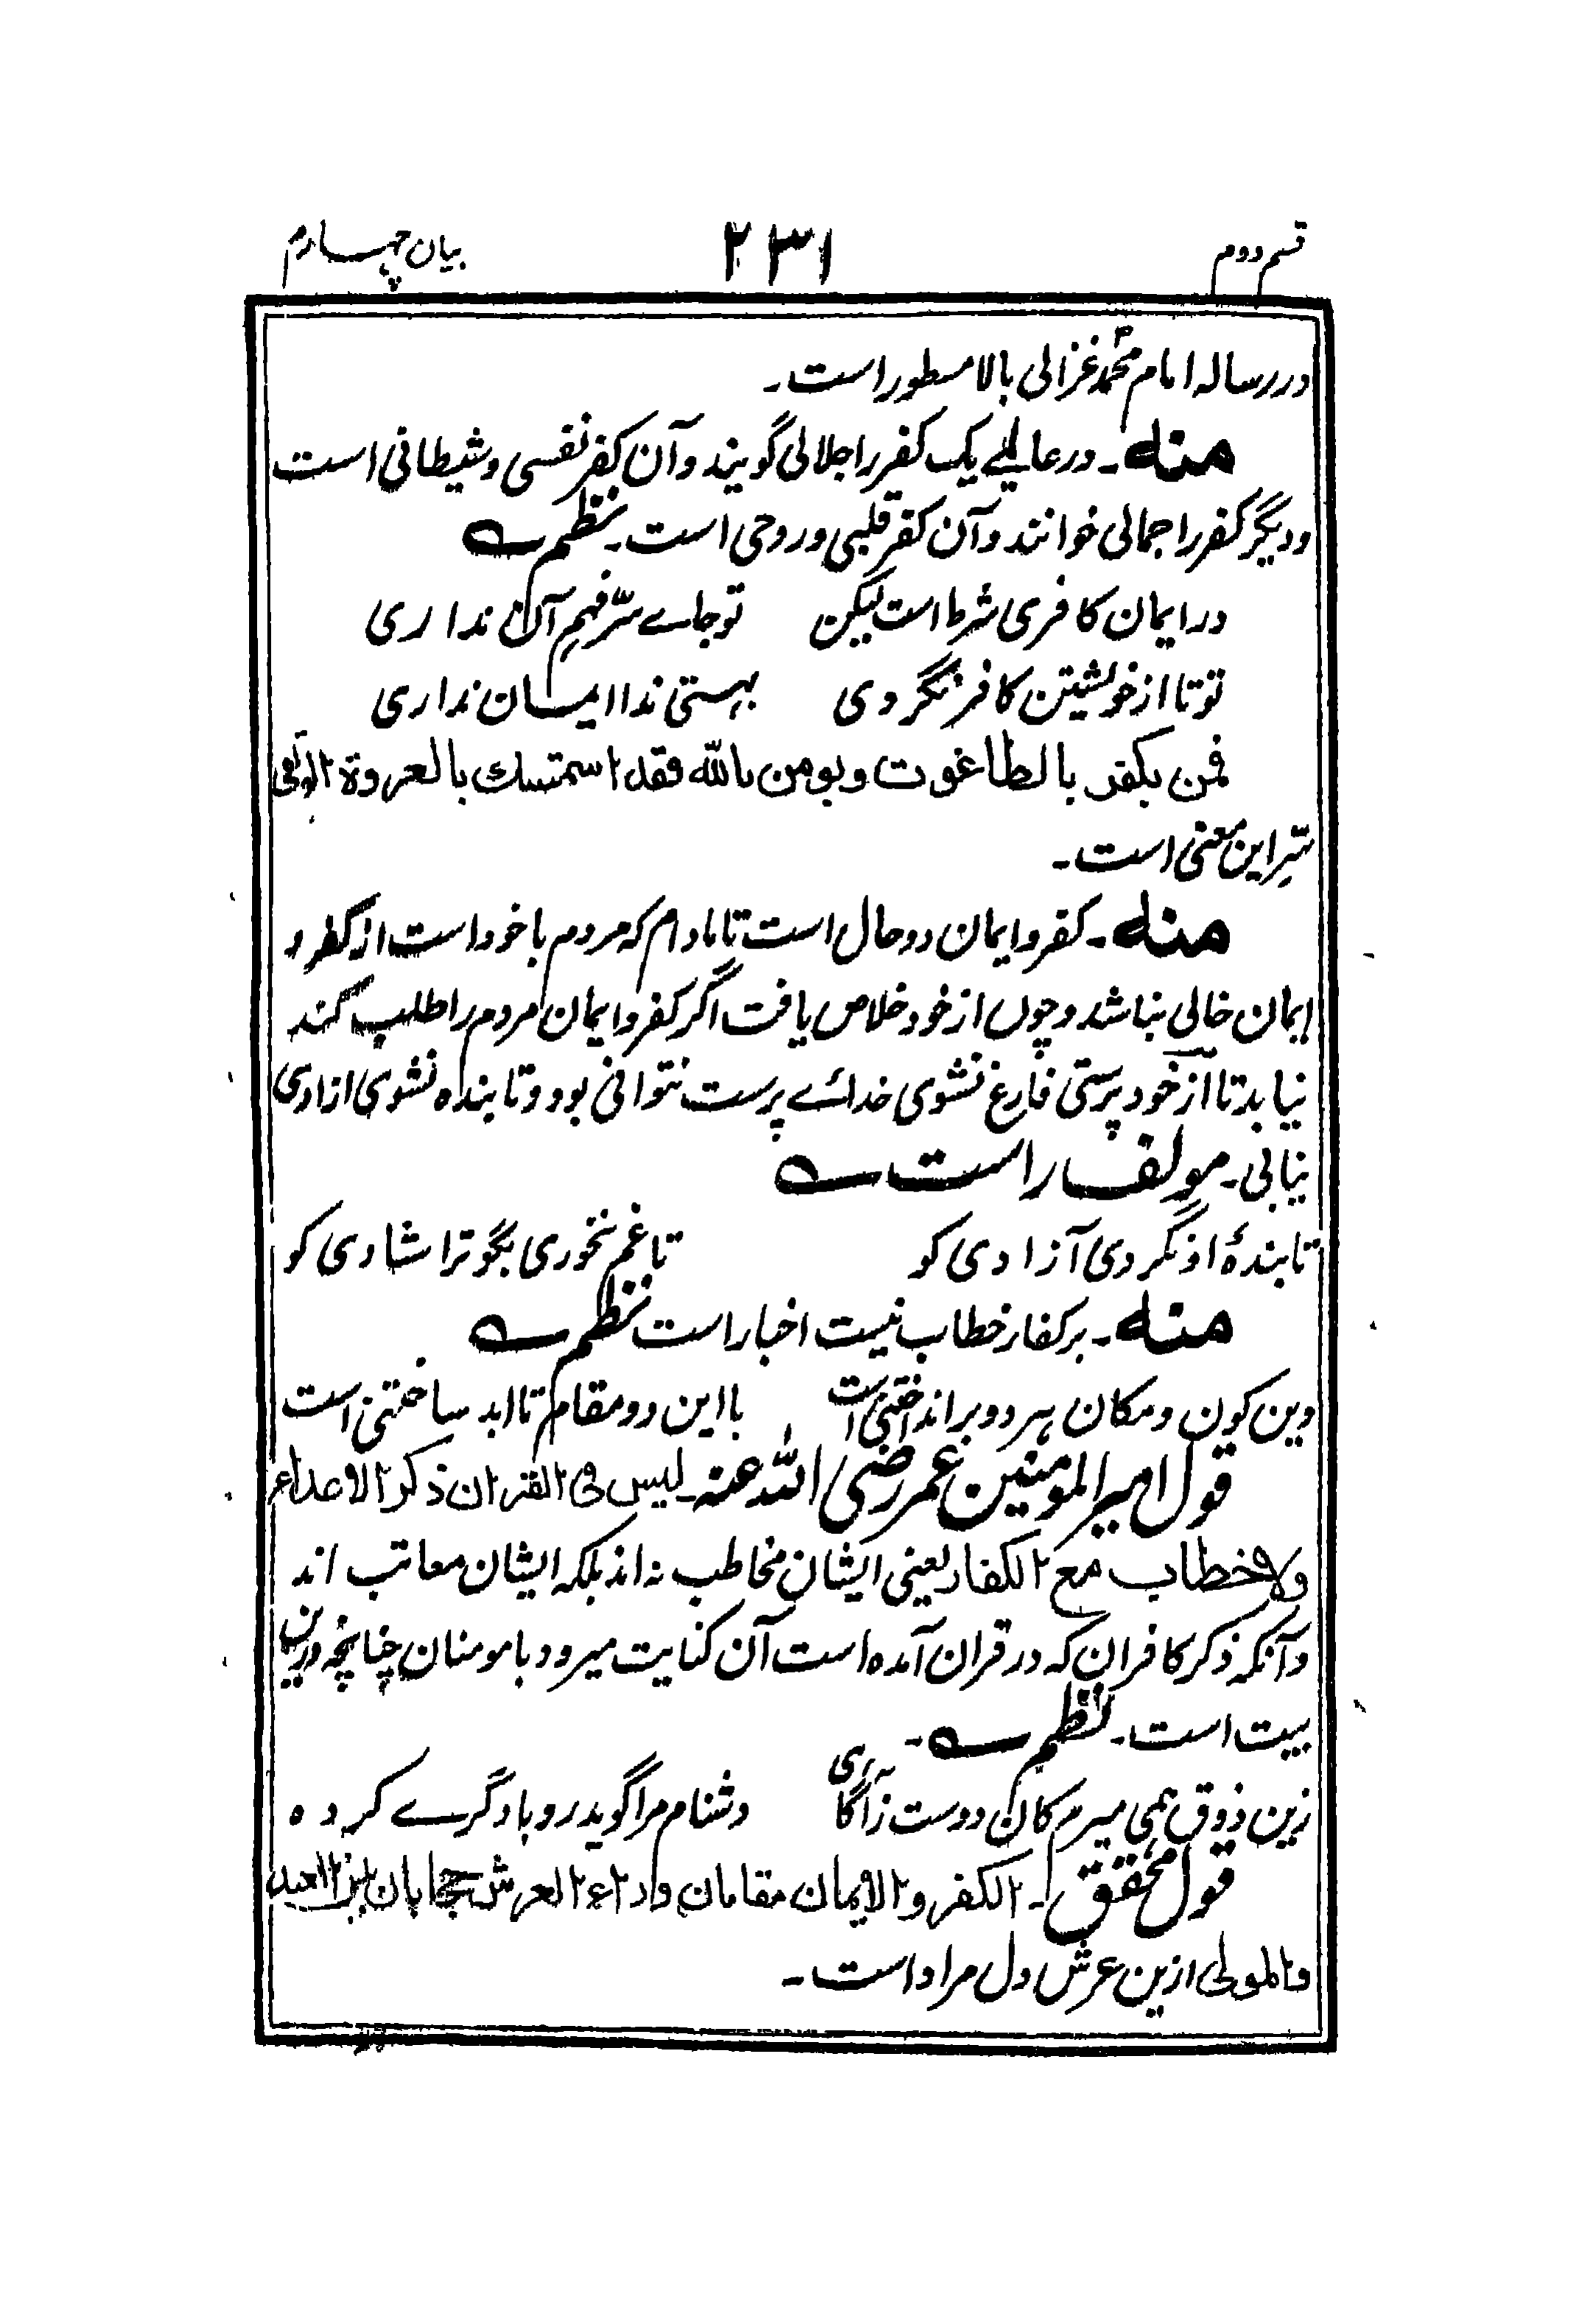 قسم دوم ۲۳۱ بیان چہارم
در رسالہ امام محمد غزالی بالا مسطور است۔
منہ۔ در عالمے یک کفر را جلالی گویند و آن کفر نفسی و شیطانی است
و دیگر کفر را جمالی خوانند و آن کفر قلبی و روحی است۔ نظم
در ایمان کافری شرط است لیکن تو جاے سرّ فہم آن نداری
تو تا از خویشتن کافر نگردی بہستی خدا ایمان نداری
فمن یکفر بالطاغوت ویومن باللہ فقد استمسک بالعروۃ الوثقی
سرّ این معنی است۔
منہ۔ کفر و ایمان دو حال است تا مادام کہ مردم با خود است از کفر و
ایمان خالی نباشد و چوں از خود خلاص یافت اگر کفر و ایمان مردم را طلب کند
نیابد تا از خود پرستی فارغ نشوی خداے پرست نتوانی بود و تا بندہ نشوی ازادی
نیابی۔ مولف راست
تا بندۂ او نگردی آزادی کو تا غم نخوری بگو ترا شادی کو
منہ۔ بر کفار خطاب نیست اخبار است نظم
وین کون و مکان ہر دو بر انداختنی است با این دو مقام تا ابد ساختنی است
قول امیر المومنین عمر رضی اللہ عنہ۔ لیس فی القران ذکر الاعداء
ولا خطاب مع الکفار یعنی ایشان مخاطب نہ اند بلکہ ایشان معاتب اند
و آنکہ ذکر کافران کہ در قران آمدہ است آن کنایت میرود با مومنان چنانچہ درین
بیت است۔ نظم۔
زین ذوق ہمی میرم کان دوست ز آگاہی دشنام مرا گوید رو با دگرے کردہ
قول محقق۔ الکفر والایمان مقامان وراء العرش حجابان بین العبد
والمولی ازین عرش دل مراد است۔